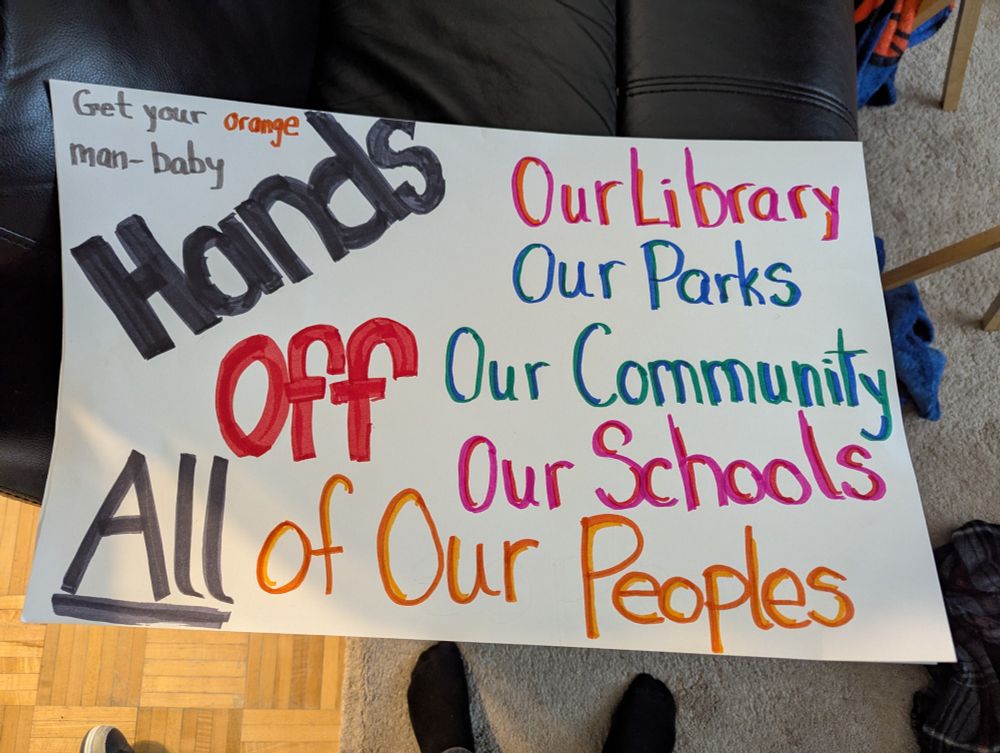 Get your orange
man-baby
Hands
Off
Our Library
Our Parks
Our Community
Our Schools
All of Our Peoples